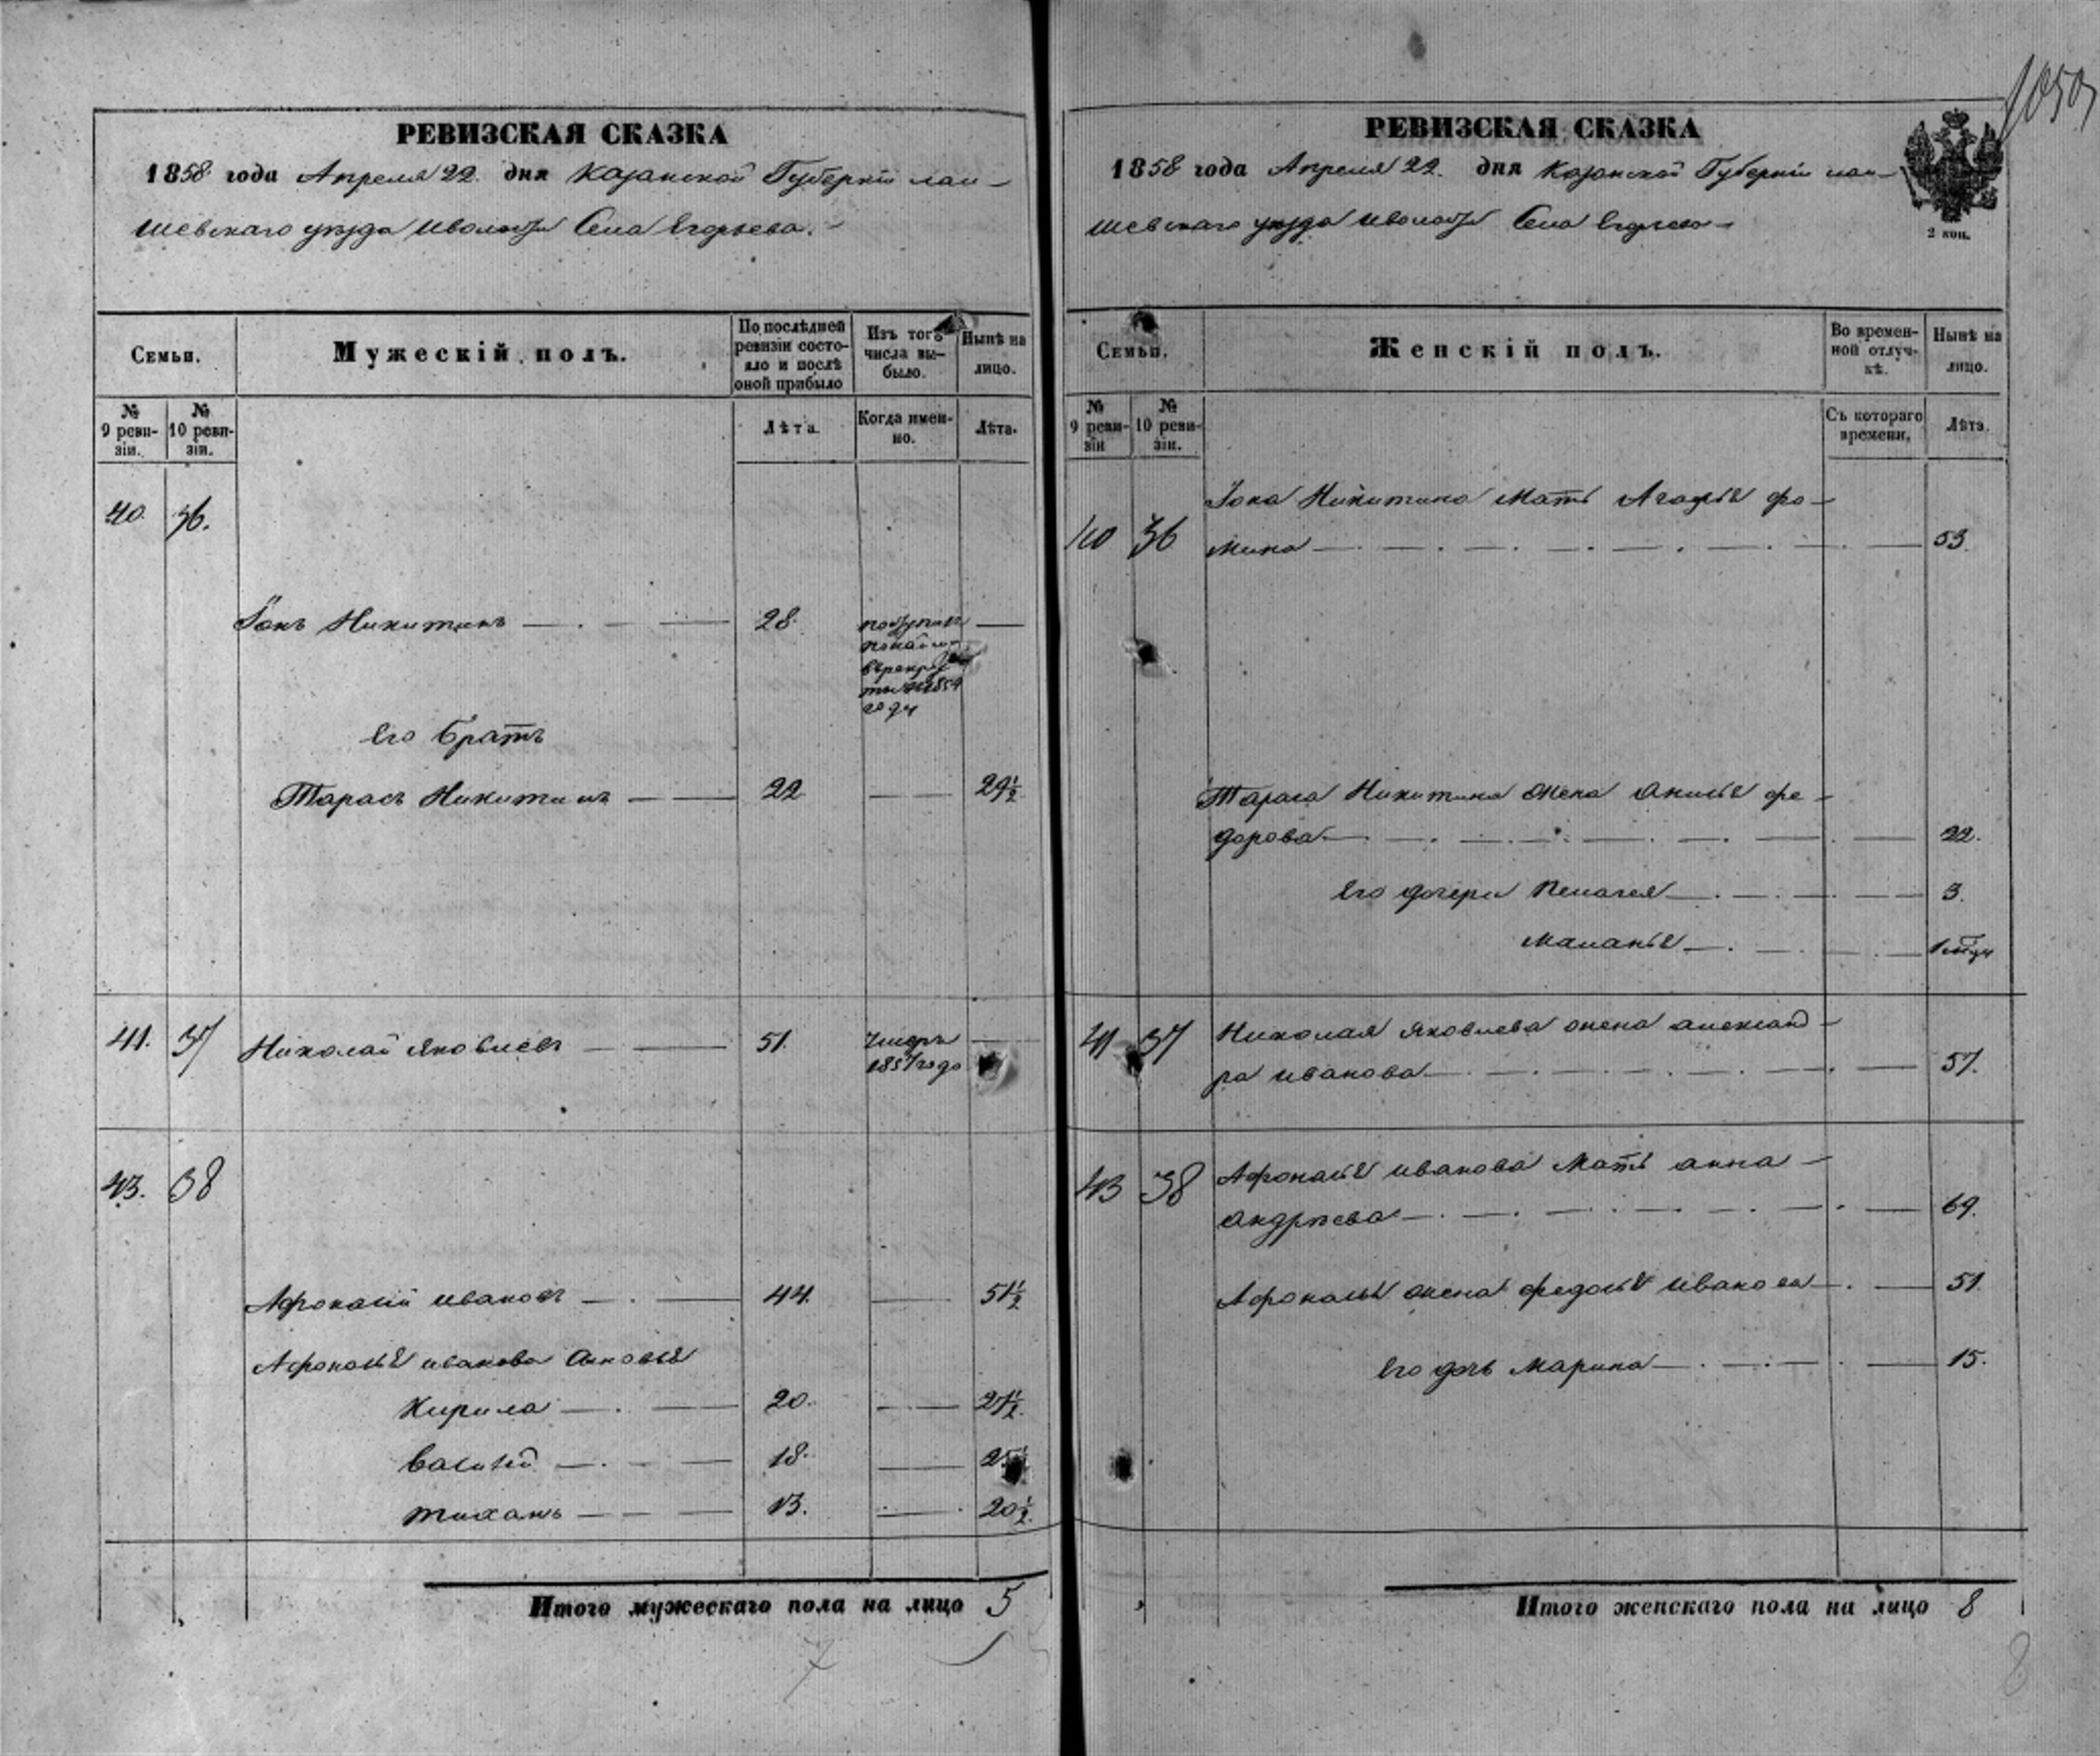 РЕВИЗСКАЯ СКАЗКА
1858 года Апреля 22 дня Казанской Губернии лаи-
шевскаго уезда и волости Села Егорьева.
Семьи.
Мужескій полъ.
По послѣдней ревизіи состояло и послѣ оной прибыло
Изъ того числа выбыло.
Нынѣ на лицо.
№ 9 ревизіи.
№ 10 ревизіи.
Лѣта.
Когда именно.
Лѣта.
40. 36.
Іонъ Никитинъ 28. поступилъ
по найму
в рекру
ты 1854
году
Его братъ
Тарасъ Никитинъ 22 29½
41. 37 Николай Яковлевъ 51. Умеръ
1857 года
43. 38
Афонасій ивановъ 44. 51½
Афонасья иванова сыновья
Кирила 20. 27½
Василий 18. 25½
тиханъ 13. 20½
Итого мужескаго пола на лицо 5
7
1050
РЕВИЗСКАЯ СКАЗКА
1858 года Апреля 22. дня Казанской Губернии лаи-
шевскаго уезда и волости Села Егорьева
2 коп.
Семьи.
Женскій полъ.
Во временной отлучкѣ.
Нынѣ на лицо.
№ 9 ревизіи
№ 10 ревизіи.
Съ котораго времени.
Лѣта.
Іона Никитина Мать Агафья фо-
40 36 мина 53.
Тараса Никитина жена анисья фе-
дорова 22.
Его дочери Пелагея 3.
Маланья
41 37 Николая Яковлева жена александ-
ра иванова 57.
43 38 Афонасья иванова Мать анна
андреева 69.
Афонасья жена федосья иванова 51
Его дочь Марина 15.
Итого женскаго пола на лицо 8
8